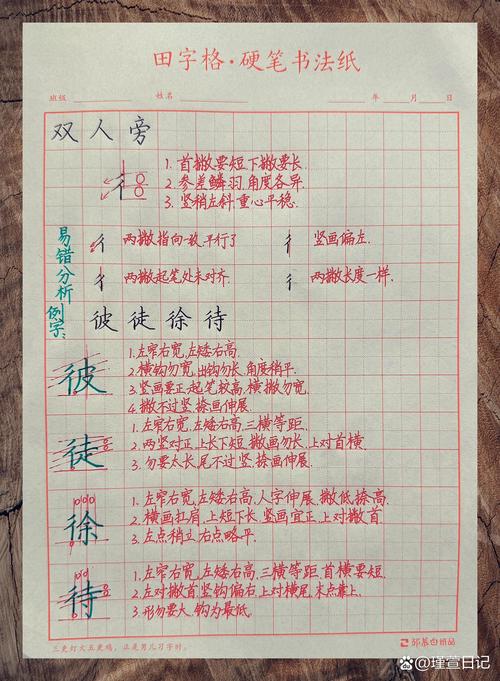 田字格·硬笔书法纸
班级 姓名 年 月 日
双人旁
1. 首撇要短下撇要长.
2. 参差鳞羽.角度各异.
3. 竖稍左斜.重心平稳.
易错分析
两撇指向一致.平行了
竖画偏左.
两撇起笔处未对齐.
两撇长度一样.
例字:
彼徒徐待
彼
1. 左窄右宽,左矮右高.
2. 横钩勿宽,出钩勿长,角度稍平.
3. 竖画要正.起笔较高,横撇勿宽.
4. 撇不过竖.捺画伸展.
徒
1. 左窄右宽,左矮右高,三横等距.
2. 两竖对正,上长下短.撇画勿长.上对首横
3. 勿要太长,尾不过竖.捺画伸展.
徐
1. 左窄右宽,左矮右高,人字伸展.撇低.捺高.
2. 横画扛肩,上短下长.竖画宜正,上对撇首
3. 左点稍立右点略平.
待
1. 左窄右宽,左矮右高,三横等距.首横要短.
2. 左对撇首竖钩偏右,上对横尾.末点靠上.
3. 形勿要大.钩为最低.
三更灯火五更鸡,正是男儿习字时。
邹慕白精品
@瑾萱日记